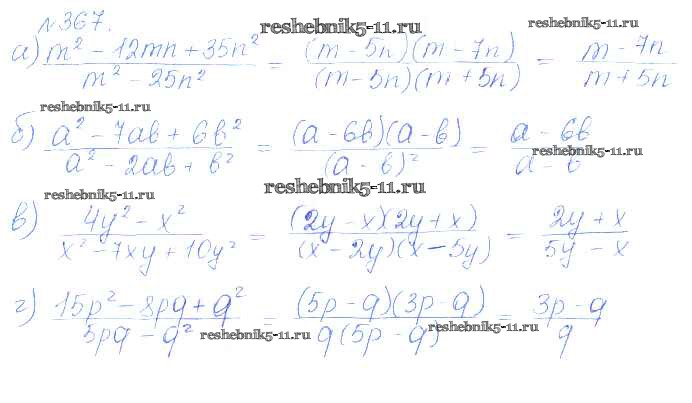 №367.
reshebnik5-11.ru
reshebnik5-11.ru
а) (m² - 12mn + 35n²)/(m² - 25n²) = ((m - 5n)(m - 7n))/((m - 5n)(m + 5n)) = (m - 7n)/(m + 5n)
reshebnik5-11.ru
б) (a² - 7ab + 6b²)/(a² - 2ab + b²) = ((a - 6b)(a - b))/((a - b)²) = (a - 6b)/(a - b)
reshebnik5-11.ru
reshebnik5-11.ru
reshebnik5-11.ru
в) (4y² - x²)/(x² - 7xy + 10y²) = ((2y - x)(2y + x))/((x - 2y)(x - 5y)) = (2y + x)/(5y - x)
г) (15p² - 8pq + q²)/(5pq - q²) = ((5p - q)(3p - q))/(q(5p - q)) = (3p - q)/q
reshebnik5-11.ru
reshebnik5-11.ru